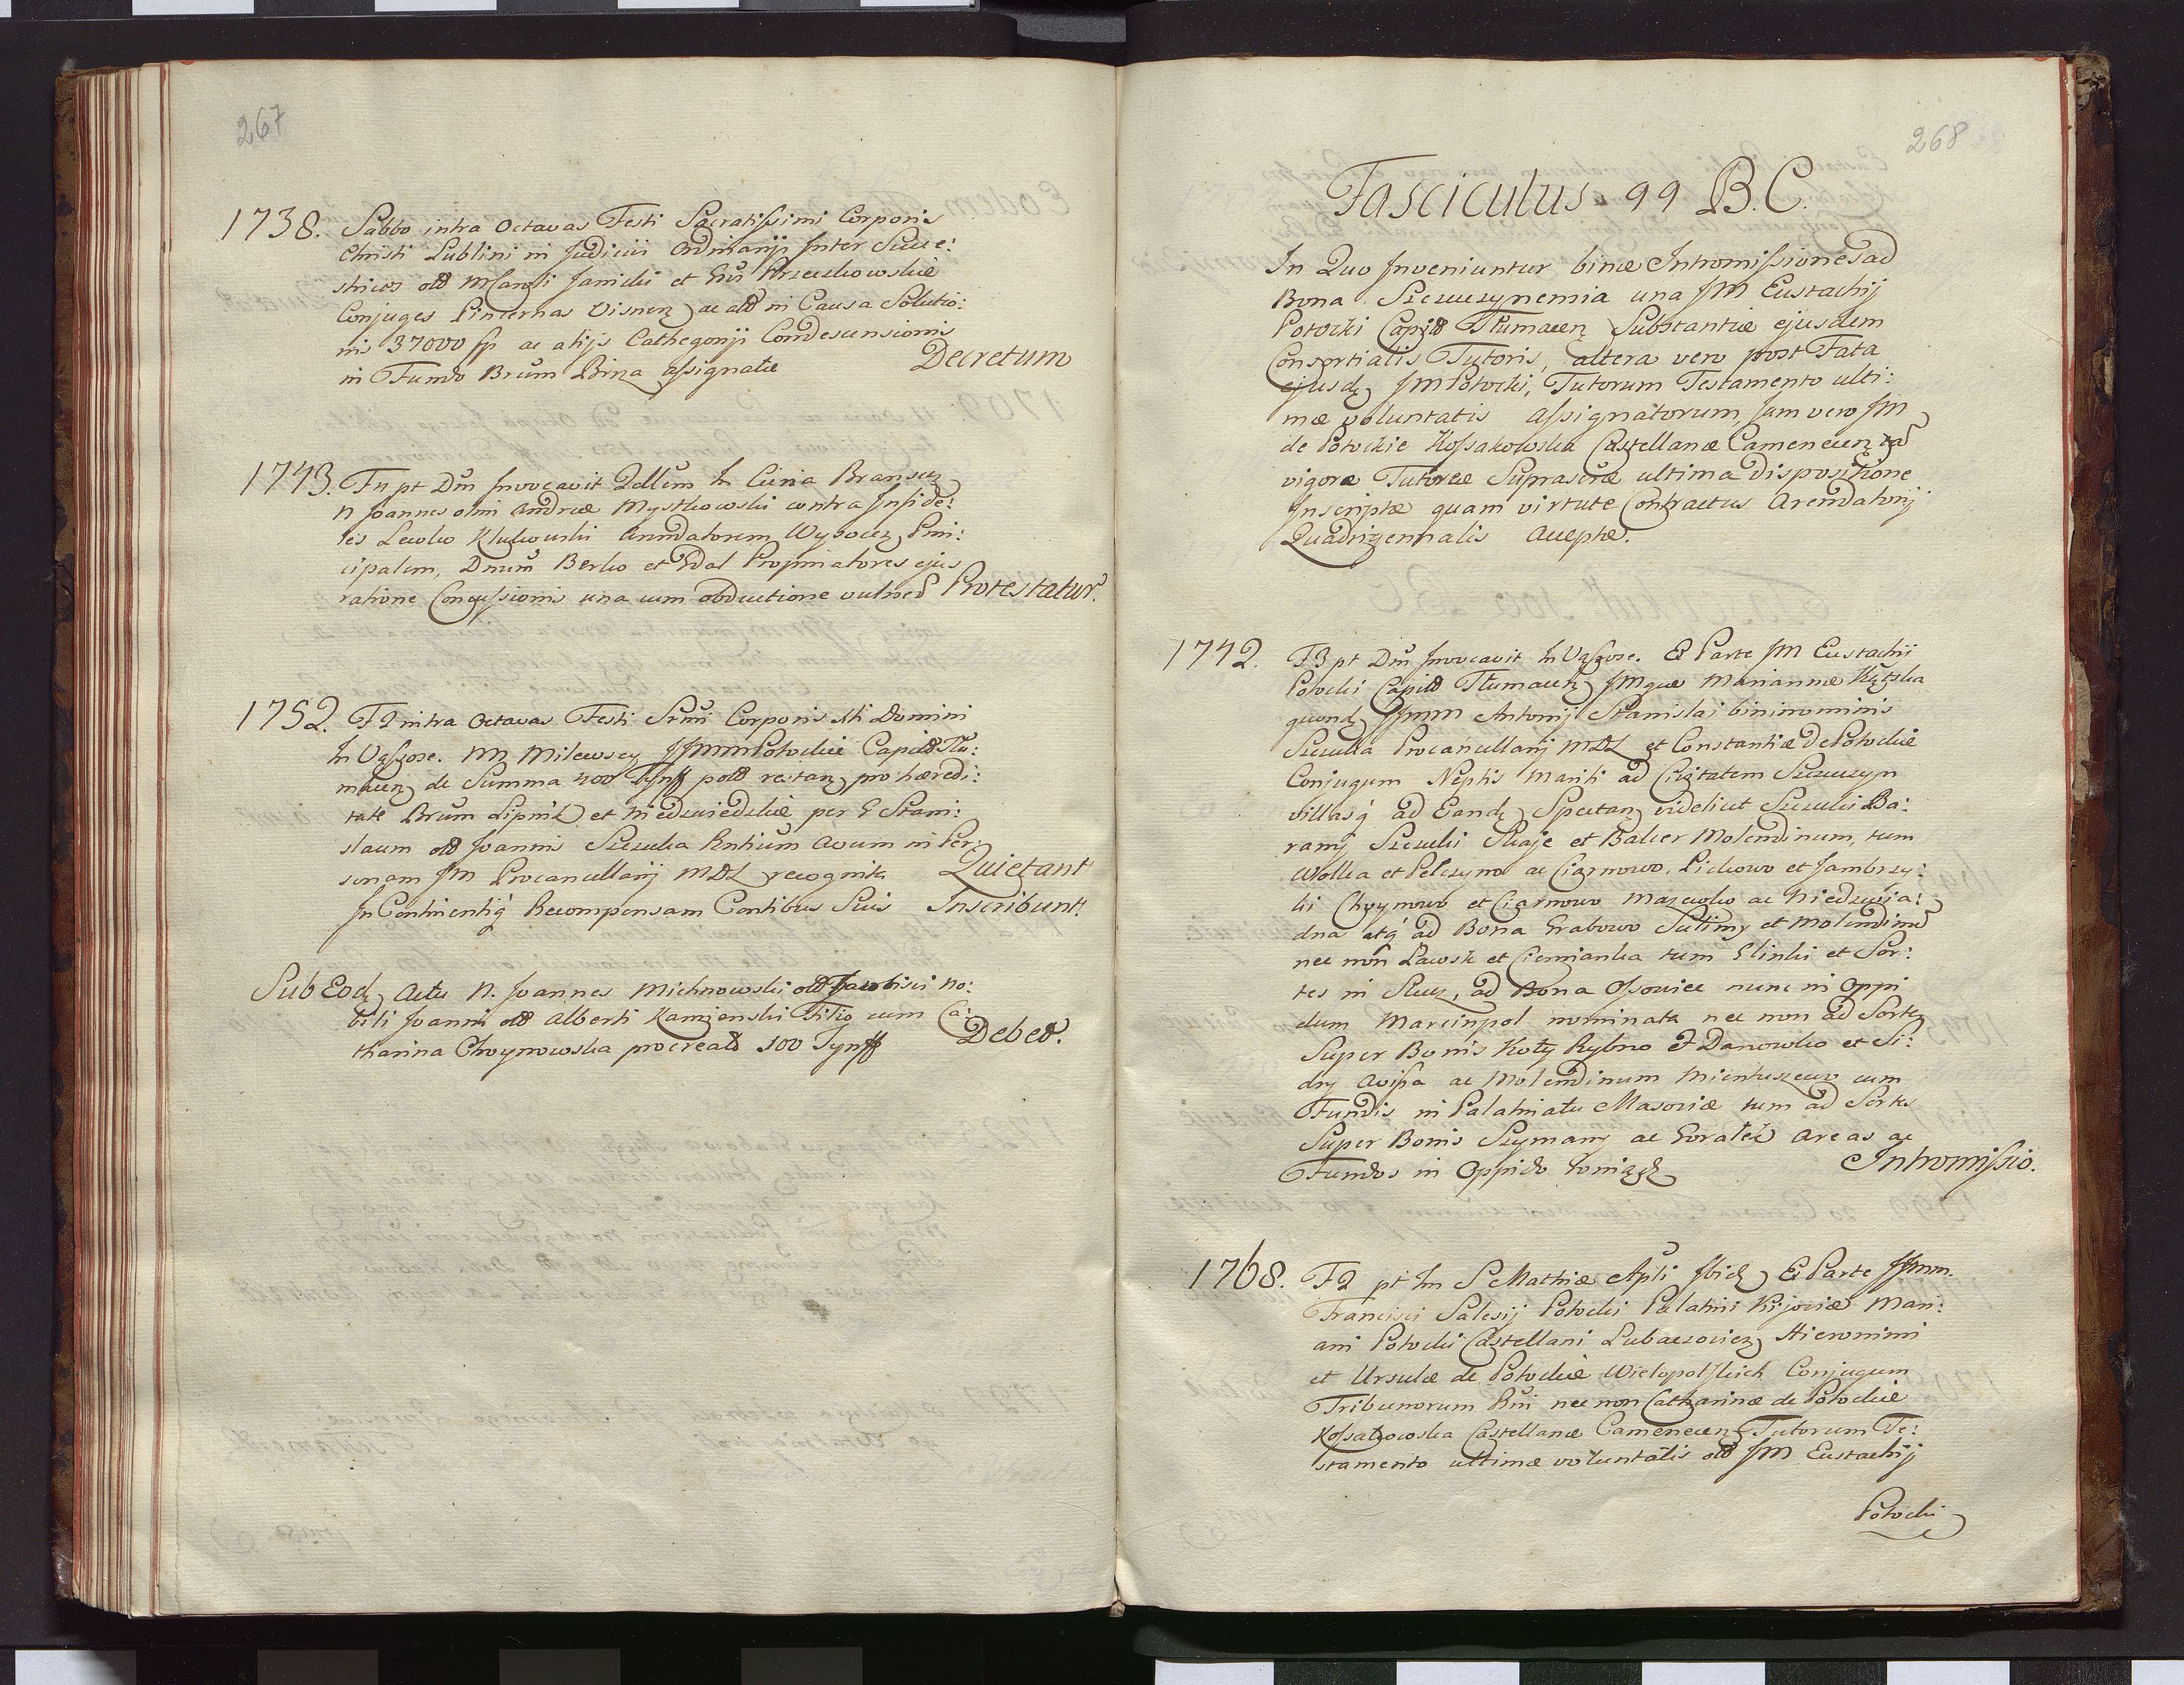 267
1738. Sabbo intra Octavas Festi Sacratissimi Corporis
Christi Lublini in Judicijs Ordinarijs Inter Succe:
ssores olð Janicki et
Conjuges Pincernas Visnen ac alð in Causa Solutio:
nis 37000 fp ac alijs Cathegorij Condescensionis
in Fundo Brum Bina assignatæ Decretum
1743. Fr pt Dm Invocavit In Curia Bransen
N Joannes olim Andreæ Mystkowski contra Infide:
les Lewko Arendatorem Prin:
cipalem, Dnum Berko et Propinatores ejus
ratione Concussionis una cum obductione vulneð Protestatur.
1752. F2 intra Octavas Festi Srmi Corporis Xti Domini
In Vąsose. MM JJmm Potockie Capitð Tłu:
macen de Summa 400 Tynff restan pro hæredi:
tate Brum Lipnik et Niedzwiedzkie per G Stani:
slaum olð Joannis Szczuka Avum in Per:
sonam JM Procancellarij MDL recognita Quietant
In Continentiq Recompensam Contibus Suis Inscribunt.
Sub Eodę Actu N. Joannes Michnowski olð no:
bili Joanni olð Alberti Kamienski Filio cum Ca:
tharina Choynowska procreatð 100 Tynff Debet.
268
Fasciculus 99 B.C.
In Quo Inveniuntur binæ Intromissiones ad
Bona Szczuczynemia una JM Eustachij
Potocki Capitð Tłumacen Substantiæ ejusdem
Consortialis Tutoris, altera vero post Fata
ejusdę JM Potocki, Tutorum Testamento ulti:
mæ voluntatis assignatorum, jam vero JM
de Potockie Kossakowska Castellanæ Camenecen
vigore Tutoreæ ultima Dispositione
Inscriptæ quam virtute Contractus Arendatorij
Quadriennalis Acceptæ.
1742. F3 pt Dm Invocavit In Vąsose. Ex Parte JM Eustachij
Potocki Capitð Tłumacen JMquæ Mariannæ Kątska
quondę JJmm Antonij Stanislai binominis
Szczuka Procancellarij MDL et Constantiæ de Potockie
Conjugum Neptis Mariti ad Civitatem Szczuczyn
villasq ad Eandę Spectan videlicet Szczuki Ba:
ranij Szczuki Skaje et Balcer Molendinum, tum
Wolka et Pelczyno ac Ciarnowo, Lickowo et Jambrzy:
ki Choynowo et Ciarnowo Mazewko ac Niedzwia:
dna atq ad Bona Grabowo Sulimy et Molendinð
nec non Ławsk et Ciemianka tum Glinki et Sor:
tes in ad Bona Ossowiec nunc in Oppi
dum Marcinpol nominata nec non ad Sortes
Super Bonis Koty Rybno et Danowko et Si:
dry Avissa ac Molendinum cum
Fundis in Palatinatu Masoviæ tum ad Sortes
Super Bonis Szymany ac Areas ac
Fundos in Oppido Intromissio.
1768. F2 pt Fm S Mathiæ Apli Ibidę Ex Parte JJmm.
Francisci Salesij Potocki Palatini Kijoviæ Mari:
ani Potocki Castellani Lubaczovien Hieronimi
et Ursulæ de Potockie Wielopolskich Conjugum
Tribunorum Rni nec non Catharinæ de Potockie
Kossakowska Castellanæ Camenecen Tutorum Te:
stamento ultimæ voluntatis olð JM Eustachij
Potocki